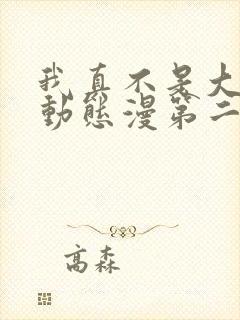 我真不是大
動態漫第二
高森